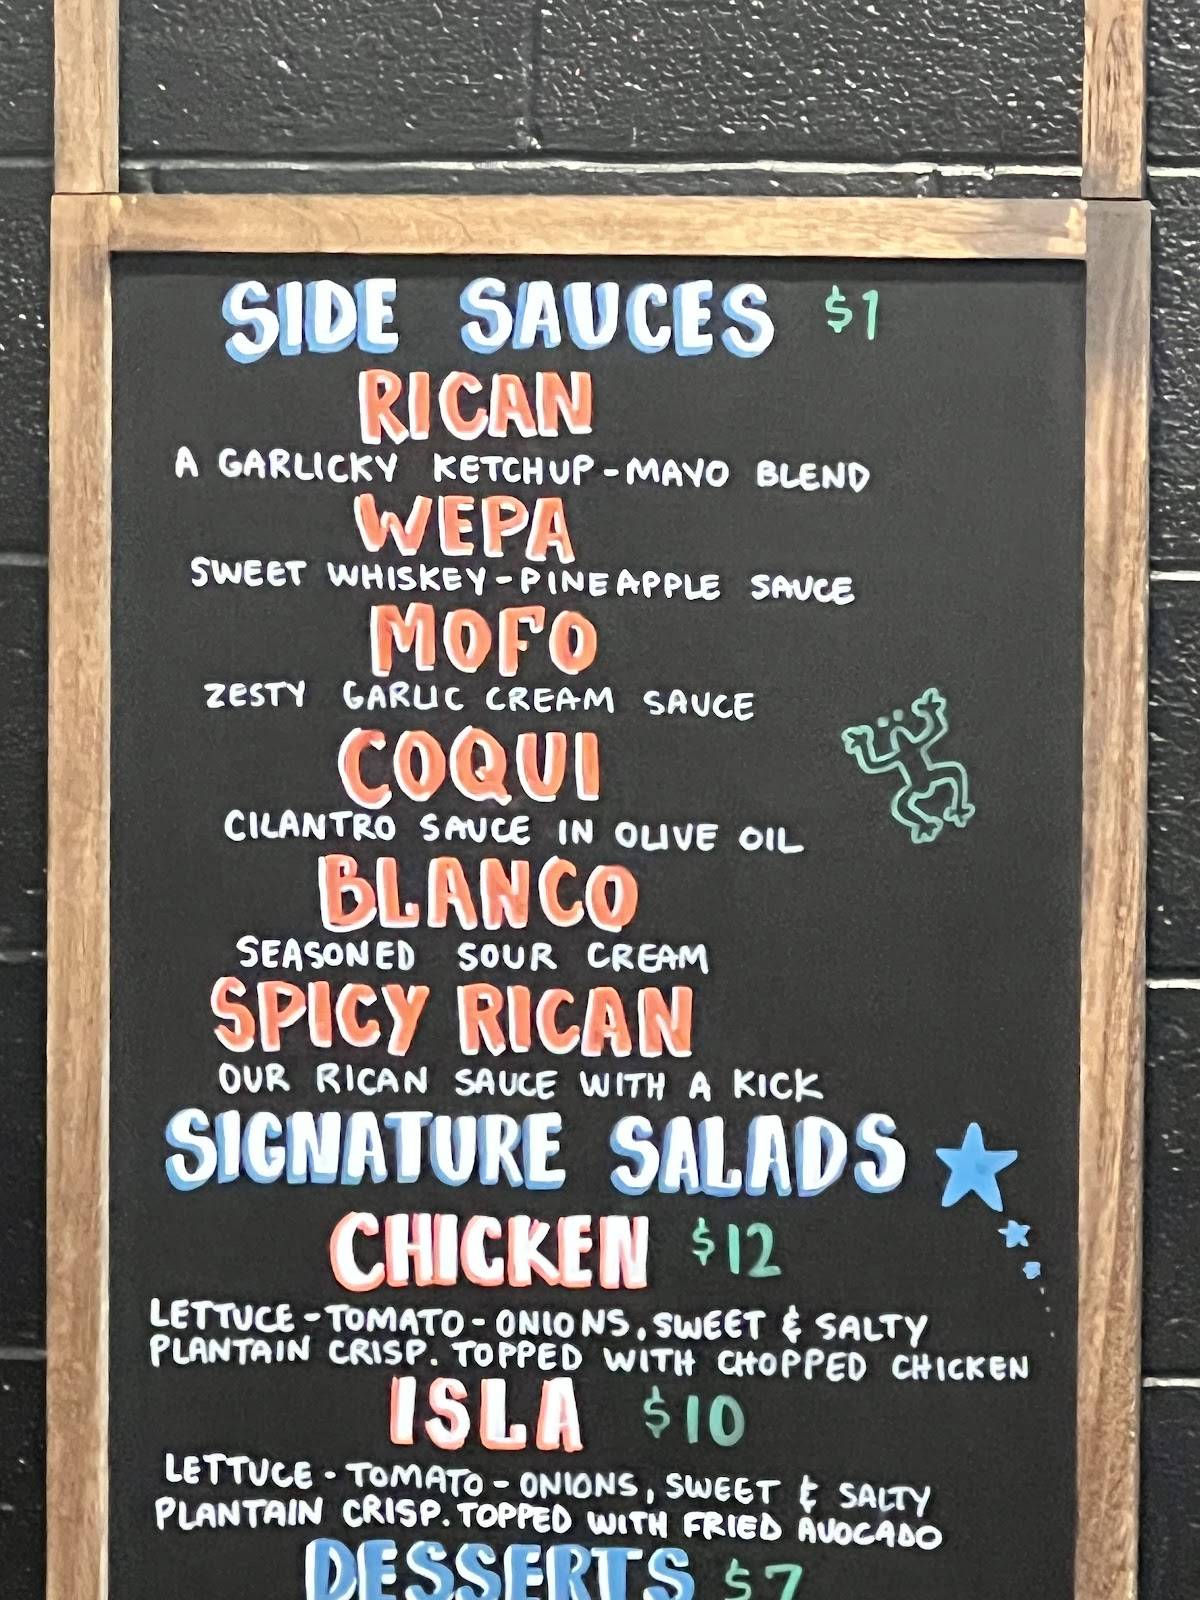 SIDE SAUCES $1
RICAN
A GARLICKY KETCHUP-MAYO BLEND
WEPA
SWEET WHISKEY-PINEAPPLE SAUCE
MOFO
ZESTY GARLIC CREAM SAUCE
COQUI
CILANTRO SAUCE IN OLIVE OIL
BLANCO
SEASONED SOUR CREAM
SPICY RICAN
OUR RICAN SAUCE WITH A KICK
SIGNATURE SALADS
CHICKEN $12
LETTUCE-TOMATO-ONIONS, SWEET & SALTY
PLANTAIN CRISP. TOPPED WITH CHOPPED CHICKEN
ISLA $10
LETTUCE-TOMATO-ONIONS, SWEET & SALTY
PLANTAIN CRISP. TOPPED WITH FRIED AVOCADO
DESSERTS $7